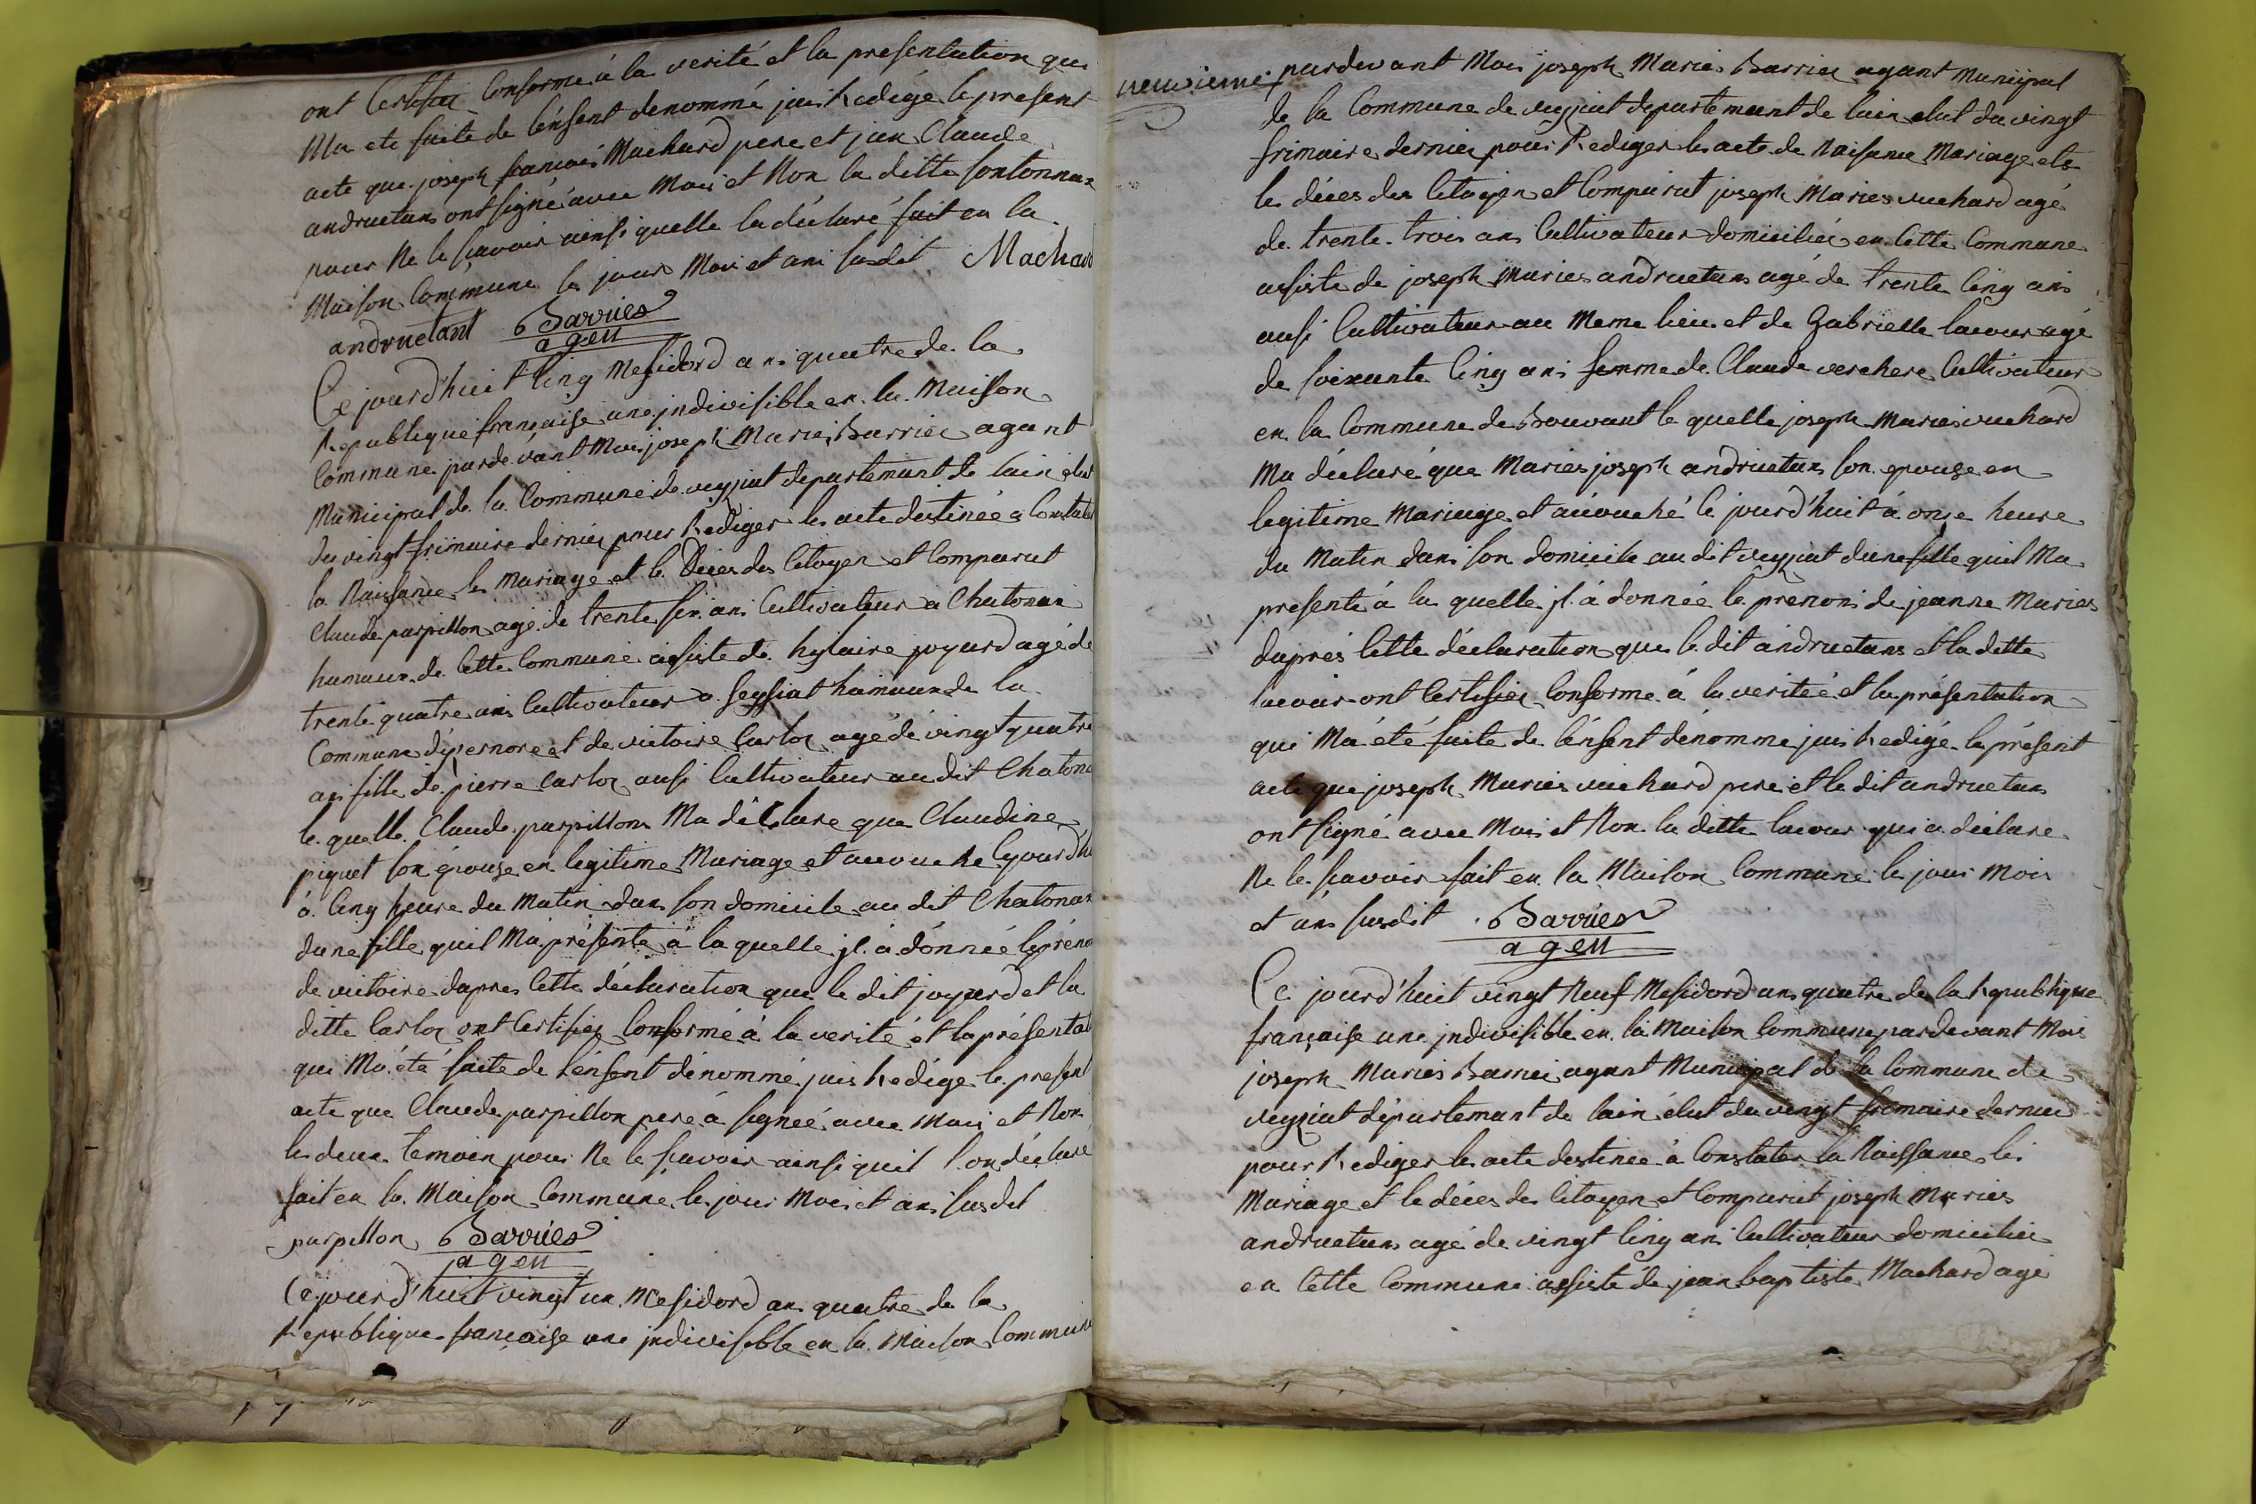 ont Certifiez Conforme à la verité et la presentation qui
Ma ete faite de lénfent denommé juis Redigé le present
acte que joseph francois Machard pere et jan Claude
andruetans ont signé avec Moi et Non la ditte fontonnax
pour Ne le scavoir ainsi quelle la déclaré fait en la
Maison Commune le jours Mois et ans susdit Machard
andruetant Barrier
agen
Ce jourd'huit cinq Mesidord ans quatre de la
Republique française une jndivisible en la Maison
Commune parde vant Moi joseph Marie Barrier agant
Municipal de la Commune de veyziat departemant de lain elut
du vingt frimaire dernier pour Rediger les acte destinée à Constater
la Naissance les Mariage et le Déces des Citoyen et Comparut
Claude parpillon agé de trente six ans Cultivateur a Chatonax
hamaux de Cette Commune assiste de hylaire joyard agé de
trente quatre ans Cultivateur a seyssiat hamaux de la
Commune dizernore et de victoire Carloz agé de vingt quatre
ans fille de pierre Carloz ausi Cultivateur au dit Chatonax
le quelle Claude parpillon Ma déClare que Claudine
piquet son épouse en legitime Mariage et accouche Cejourd'hui
à Cinq heure du Matin dans son domicile au dit Chatonax
dune fille quil Ma présente a la quelle jl à donnée le prénom
de victoire dapres Cette déclaration que le dit joyard et la
ditte Carloz ont Certifiez Conformé à la verité et la présentat
qui Ma été faite de lénfent dénommé juis Rédige le present
acte que Claude parpillon pere à signée avec Moi et Non
les deux temoin pour Ne le scavoir ainsi quil l'on déclare
fait en la Maison Commune le jour Mois et ans susdit
parpillon Barrier
agen
Ce jourd'huit vingt un Mesidord ans quatre de la
Republique française une jndivisible en la Maison Commune
pardevant Moi joseph Marie Barrier agant Municipal
de la Commune de veyziat departemant de lain elut du vingt
frimaire dernier pour Rediger les acte de Naisance Mariage et
les déces des Citoyen et Comparut joseph Marie vuchard agé
de trente trois ans Cultivateur domicilié en Cette Commune
assiste de joseph Marie andruetans agé de trente Cinq ans
ausi Cultivateur au Meme lieu et de Gabrielle lacour agé
de soixante Cinq ans femme de Claude verchere Cultivateur
en la Commune de Bouvant le quelle joseph Marie vuchard
Ma déclaré que Marie joseph andruetans son epouse en
legitime Mariage et accouché Ce jourd'huit à onse heure
du Matin dans son domicile au dit veyziat dune fille quil Ma
presenté à la quelle jl à donnée le prenom de jeanne Marie
daprés Cette déclaration que le dit andruetans et la ditte
lacour ont Certifiez Conforme à la veriteé et la présentation
qui Má été faite de lénfent dénommé juis Redigé le présent
acte que joseph Marie vuichard pere et le dit andruetans
ont signé avec Moi et Non la ditte lacour qui a déclare
Ne le scavoir fait en la Maison Commune le jour Mois
et ans susdit Barrier
agen
Ce jourd'huit vingt Neuf Mesidord ans quatre de la Republique
française une jndivisible en la Maison Commune pardevant Moi
joseph Marie Barrier agant Municipal de la Commune de
veyziat départemant de lain élut du vingt frimaire dernier
pour Rediger les acte destinee à Constater la Naissance les
Mariage et le déces des Citoyen et Comparut joseph Marie
andruetans agé de vingt Cinq ans Cultivateur domicilié
en Cette Commune assisté de jean baptiste Machard agé